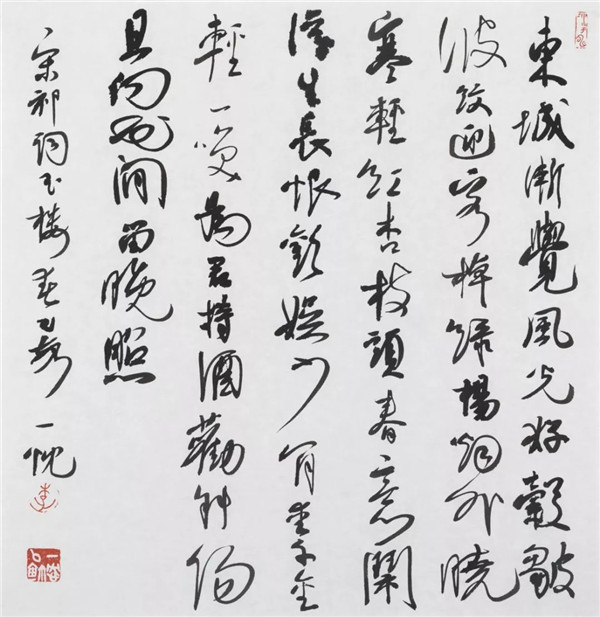 東城漸覺風光好縠皺
波紋迎客棹綠楊烟外曉
寒輕紅杏枝頭春意鬧
浮生長恨歡娛少肯愛千金
輕一笑為君持酒勸斜陽
且向花間留晚照
宋祁詞玉樓春 一忱
李